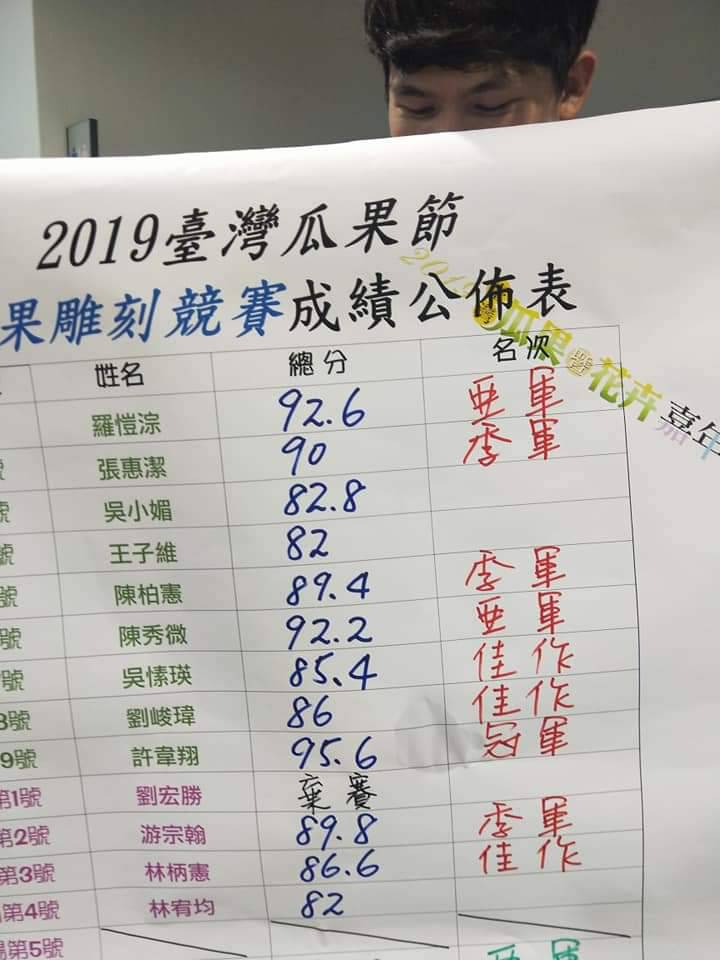 2019臺灣瓜果節
果雕刻競賽成績公佈表
2019 瓜果暨花卉嘉年
姓名 總分 名次
羅愷淙 92.6 亞軍
號 張惠潔 90 季軍
號 吳小媚 82.8
號 王子維 82
號 陳柏憲 89.4 季軍
號 陳秀微 92.2 亞軍
號 吳愫瑛 85.4 佳作
8號 劉峻瑋 86 佳作
9號 許韋翔 95.6 冠軍
第1號 劉宏勝 棄賽
第2號 游宗翰 89.8 季軍
第3號 林柄憲 86.6 佳作
第4號 林宥均 82
場第5號 亞軍